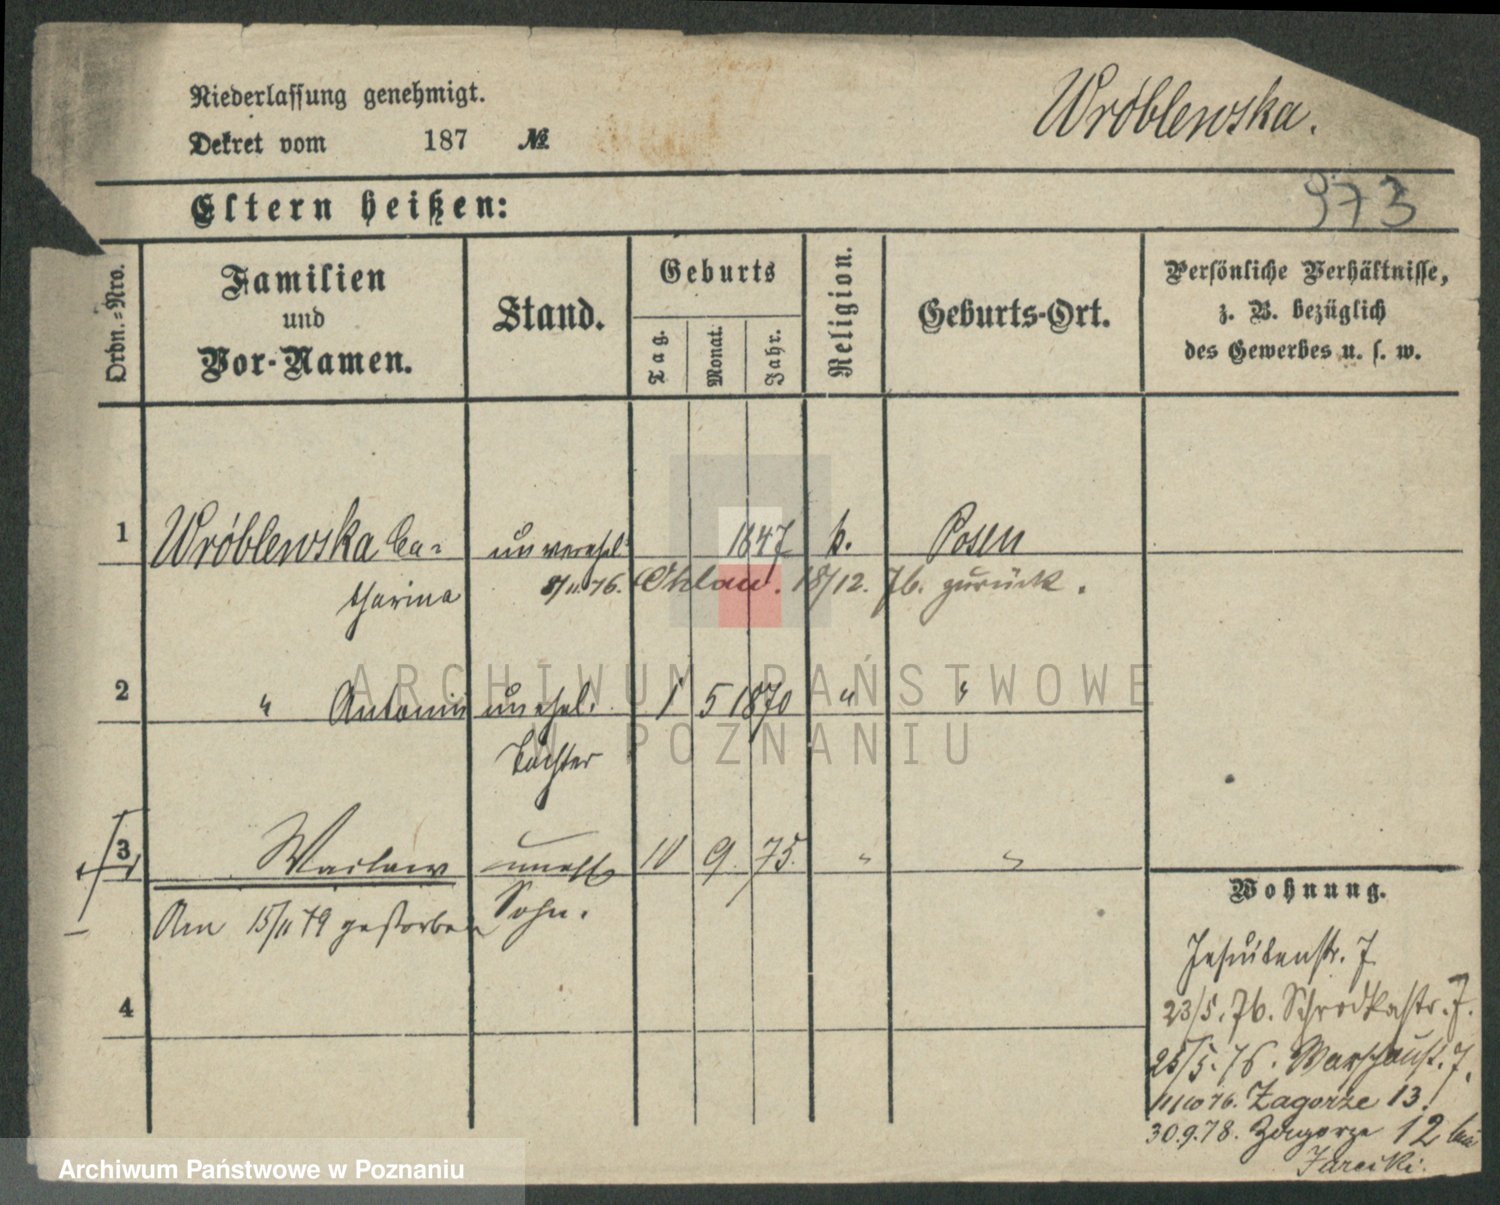 Niederlassung genehmigt.
Dekret vom 187 №
Wróblewska.
973
Eltern heißen:
Ordn.=Nro.
Familien
und
Vor-Namen.
Stand.
Geburts
Tag.
Monat.
Jahr.
Religion.
Geburts-Ort.
Persönliche Verhältnisse,
z. B. bezüglich
des Gewerbes u. s. w.
1 Wróblewska Ca- unverehel 1847 k. Posen
tharina 8/11.76. Ohlau. 18/12. 76. zurück.
2 " Antonie unehel. 1 5 1870 " "
Tochter
3 Waclaw unehl 10 9. 75. " "
Am 15/11 79 gestorben Sohn.
4
Wohnung.
Jesuitenstr. 7
23/5. 76. Schrodkastr. 7.
25/5. 76. Warschaust. 7.
11/10 76. Zagorze 13.
30.9.78. Zagorze 12 bei
Jarecki.
ARCHIWUM PAŃSTWOWE
W POZNANIU
Archiwum Państwowe w Poznaniu